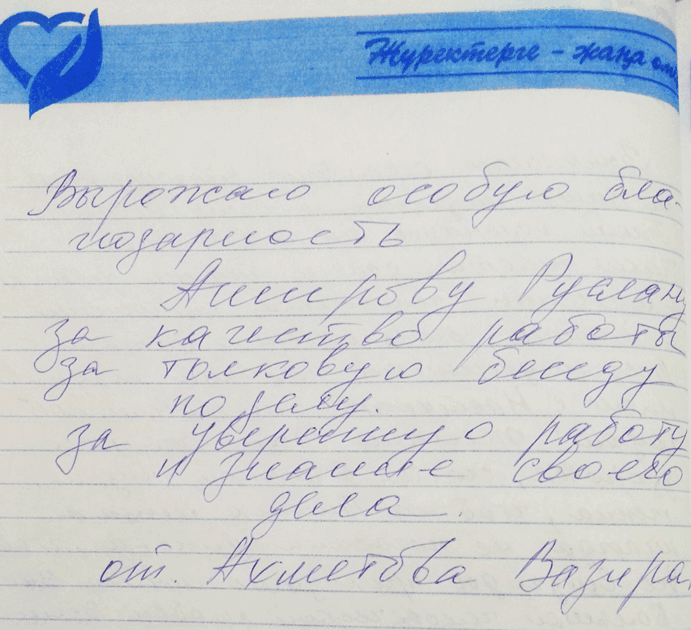 Жүректерге - жаңа
Выражаю особую бла-
годарность
Аширову Руслану
за качество работы
за толковую беседу
по делу.
за уверенную работу
и знание своего
дела.
от. Ахметова